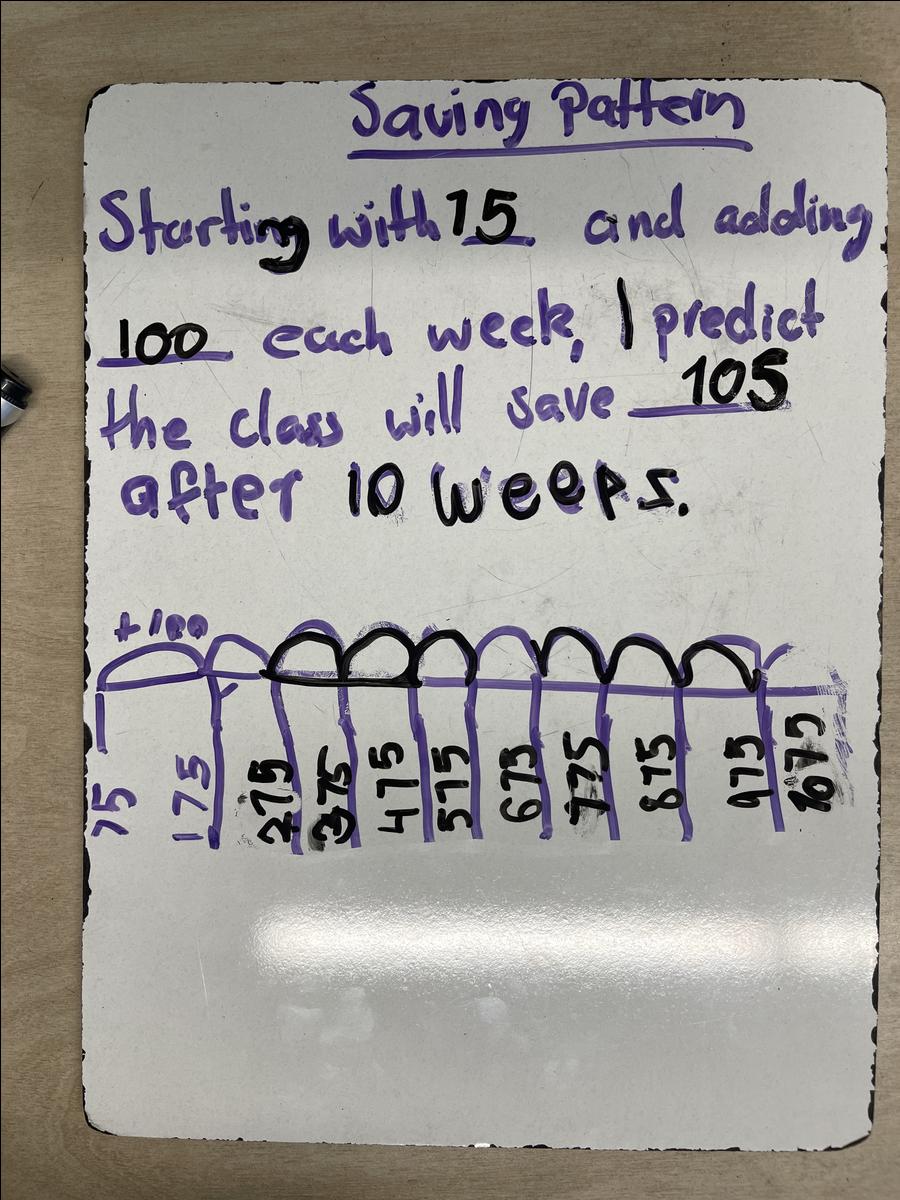 Saving Pattern
Starting with 75 and adding
100 each week, I predict
the class will save 105
after 10 weeks.
+100
75 175 275 375 475 575 675 775 875 975 1075